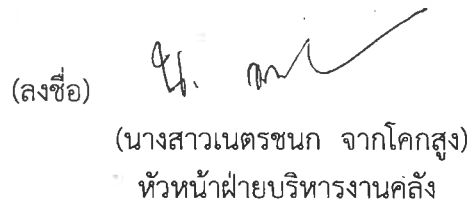 (ลงชื่อ)
(นางสาวเนตรชนก จากโคกสูง)
หัวหน้าฝ่ายบริหารงานคลัง